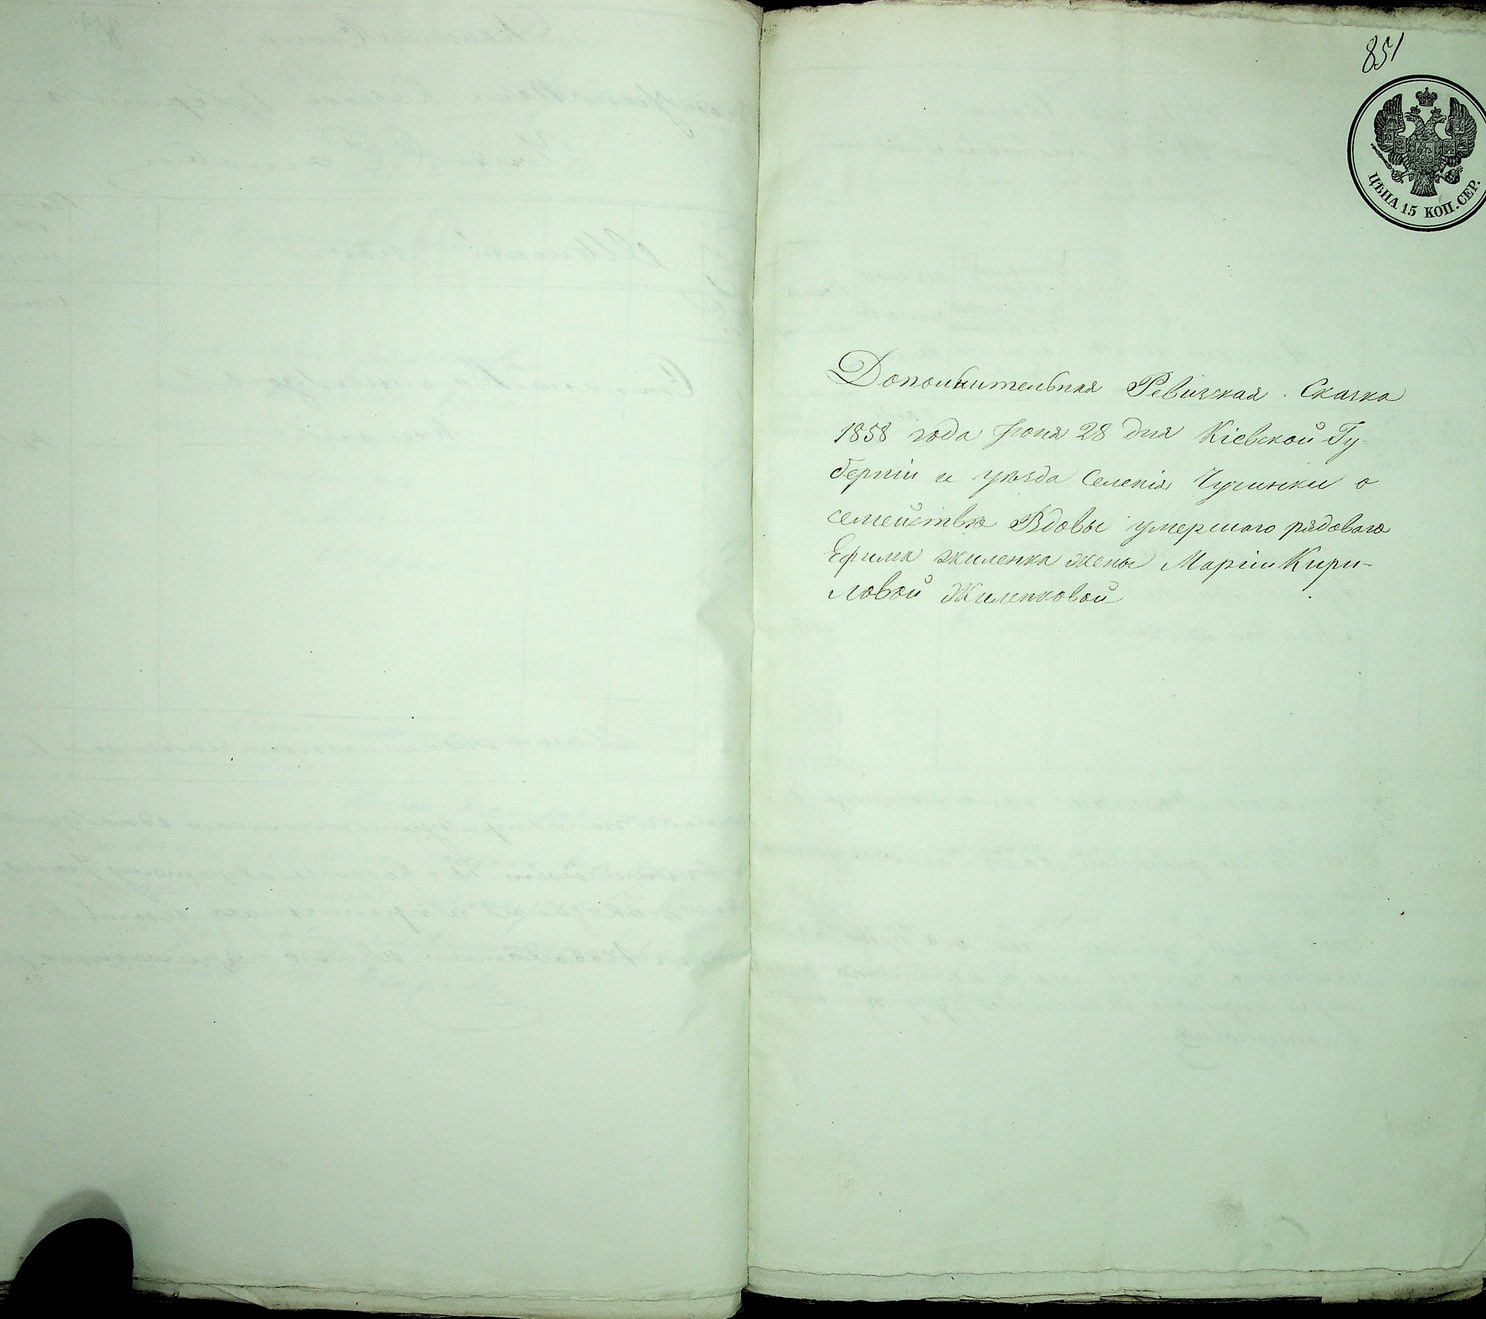 851
ЦѢНА 15 КОП. СЕР.
Дополнительная Ревизская Сказка
1858 года Іюня 28 дня Кіевской Гу-
берніи и уѣзда Селенія Чучинки о
семействѣ Вдовы умершаго рядоваго
Ефима Жиленка жены Маріи Кири-
ловой Жиленковой